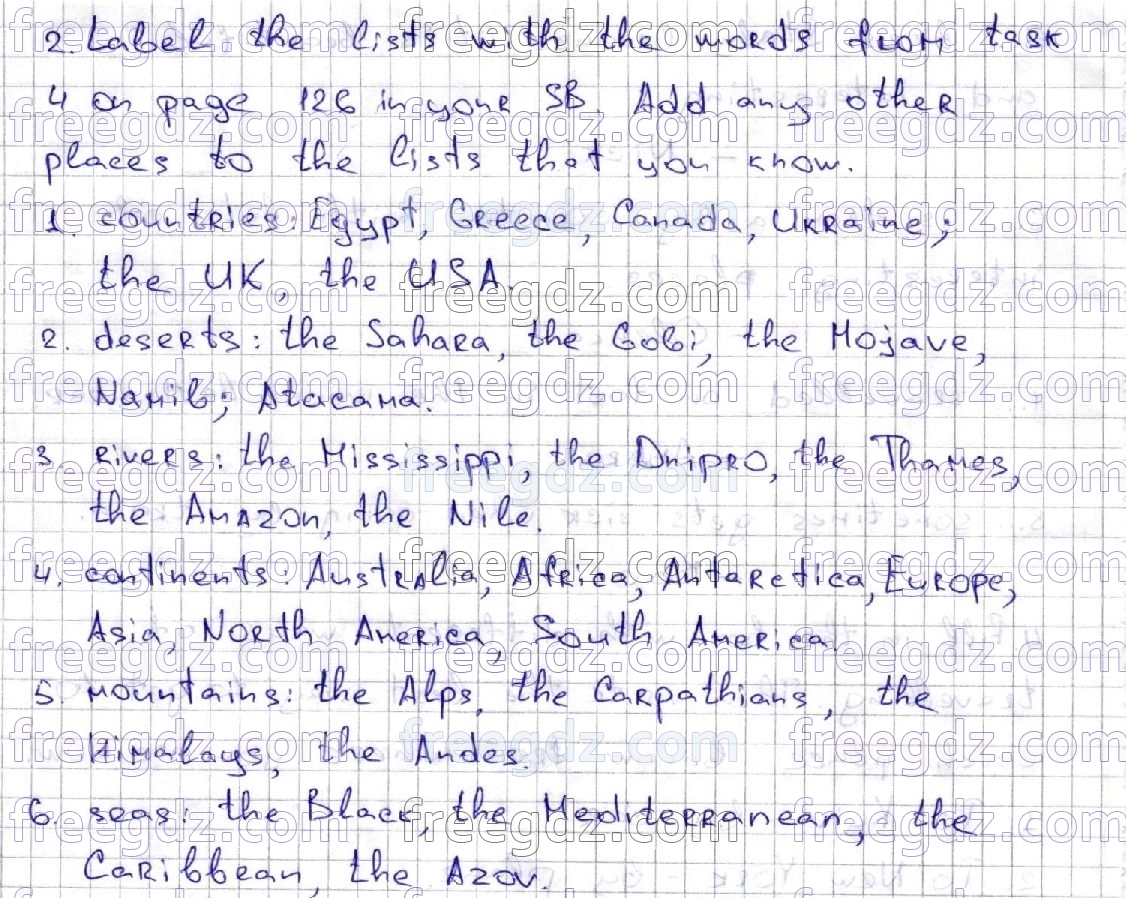 2. Label the lists with the words from task
4 on page 126 in your SB. Add any other
places to the lists that you know.
1. countries: Egypt, Greece, Canada, Ukraine;
the UK, the USA.
2. deserts: the Sahara, the Gobi, the Mojave,
Namib; Atacama.
3. rivers: the Mississippi, the Dnipro, the Thames,
the Amazon, the Nile.
4. continents: Australia, Africa, Antarctica, Europe,
Asia, North America, South America.
5. mountains: the Alps, the Carpathians, the
Himalays, the Andes.
6. seas: the Black, the Mediterranean, the
Caribbean, the Azov.
freegdz.com